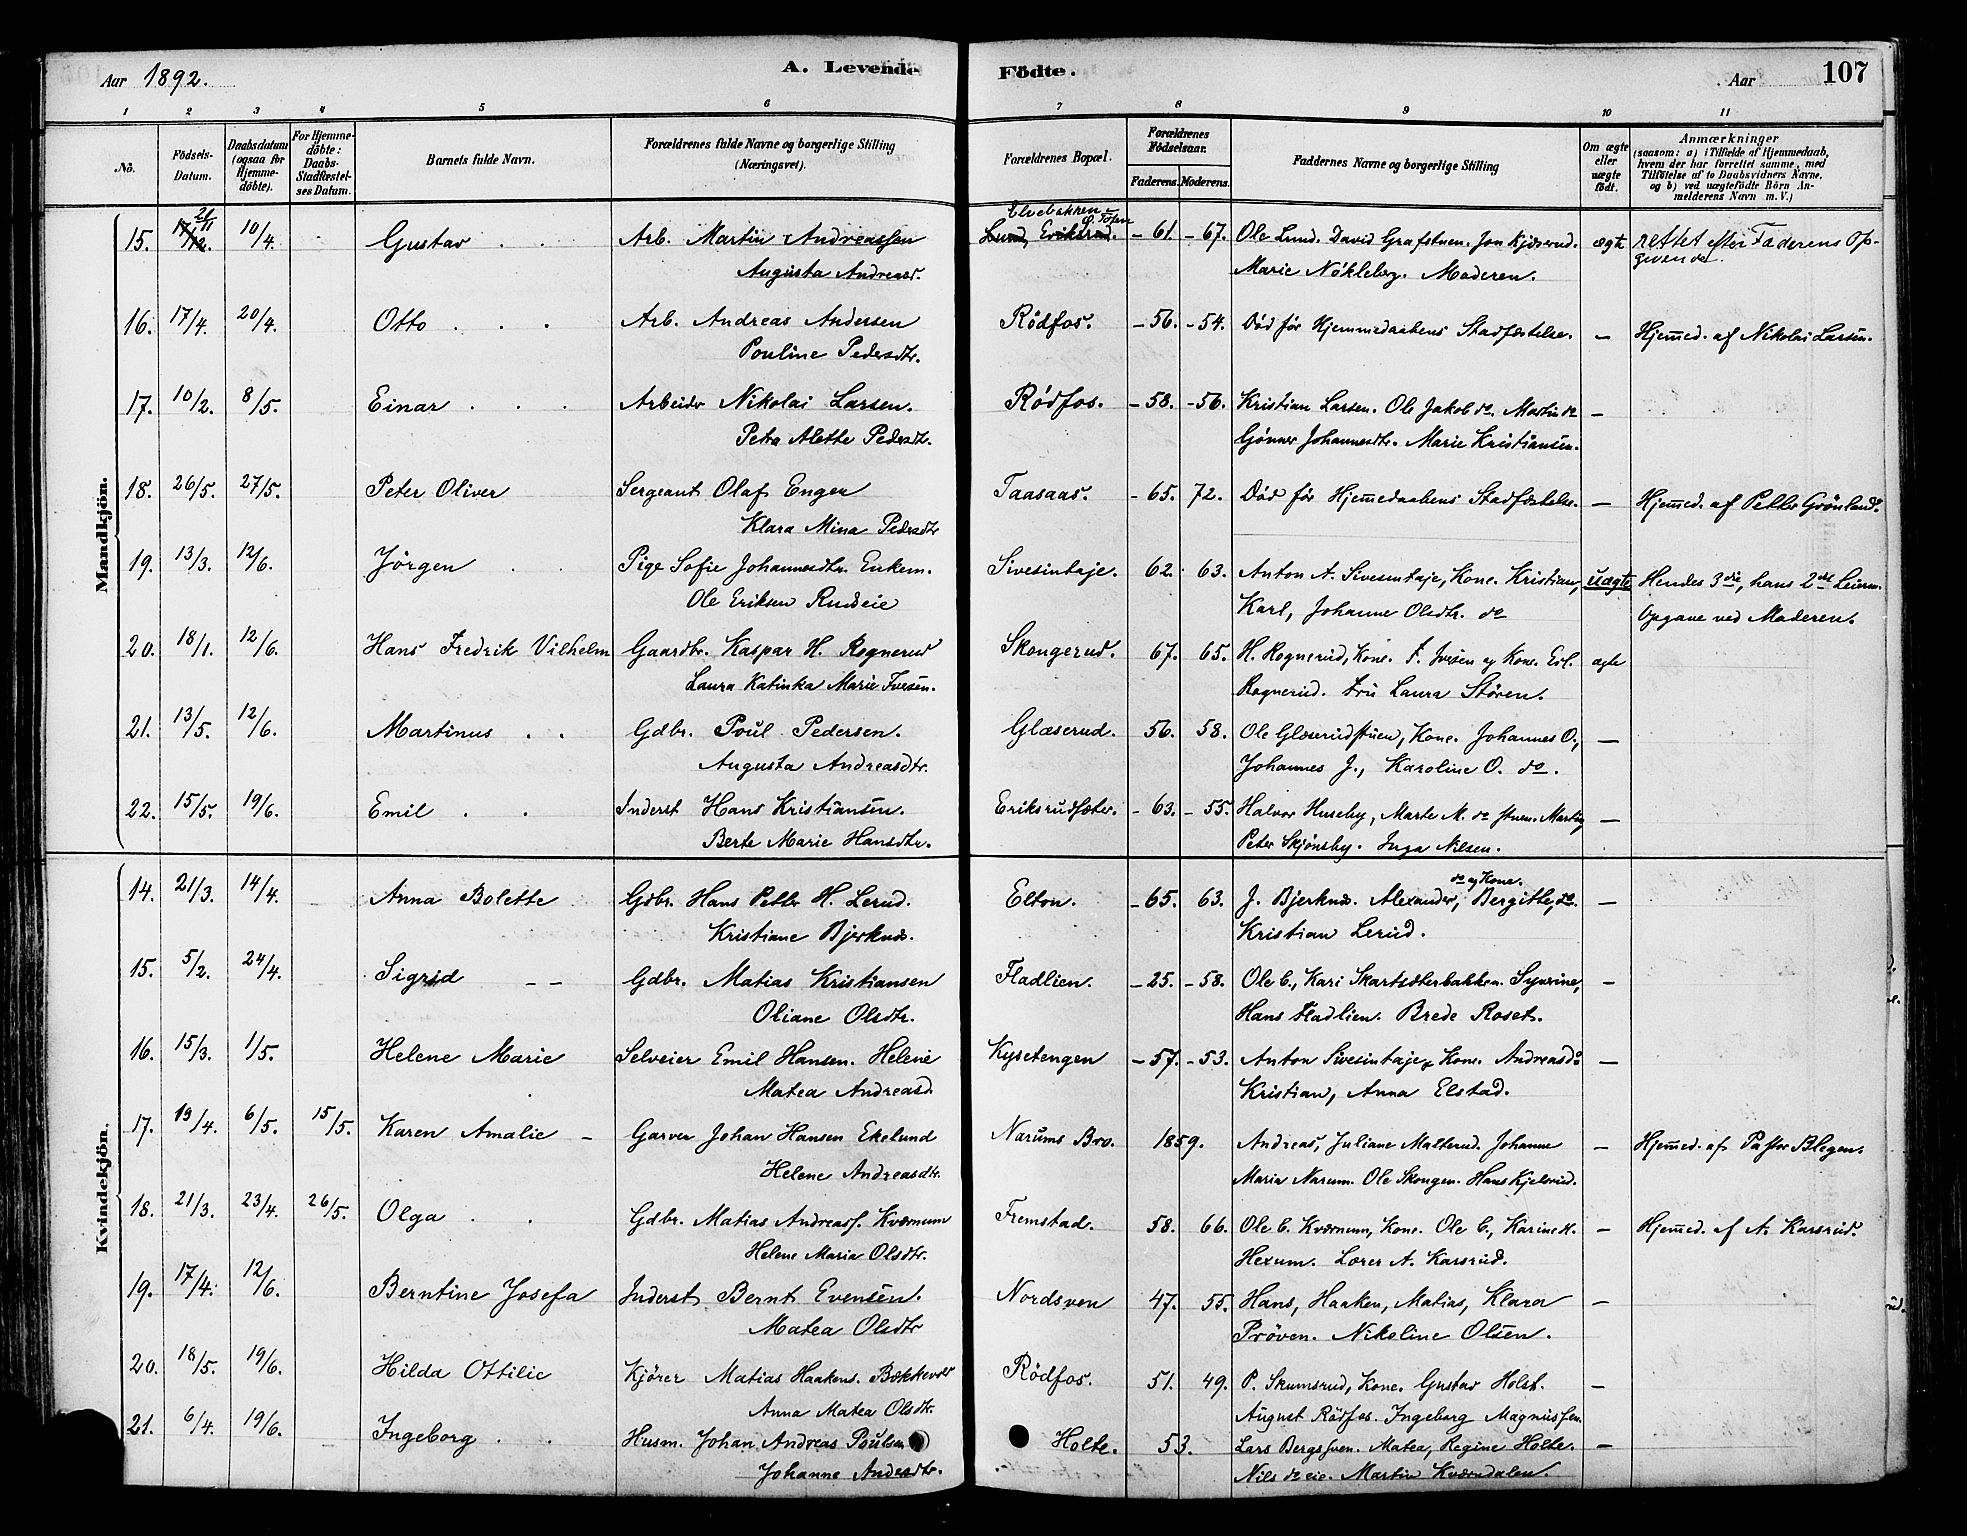 Aar 1892.
A. Levende Födte.
Aar
107
1 2 3 4 5 6 7 8 9 10 11
No.
Födsels-Datum.
Daabsdatum (ogsaa for Hjemme-döbte).
For Hjemme-döbte: Daabs-Stadfæstel-ses Datum.
Barnets fulde Navn.
Forældrenes fulde Navne og borgerlige Stilling (Næringsvei).
Forældrenes Bopæl.
Forældrenes Födselsaar.
Faderens. Moderens.
Faddernes Navne og borgerlige Stilling
Om ægte eller uægte födt.
Anmærkninger
(saasom: a) i Tilfælde af Hjemmedaab, hvem der har forrettet samme, med Tilföielse af to Daabsvidners Navne, og b) ved uægtefödte Börn An-melderens Navn m. V.)
Mandkjön.
15. 10/4. Gustav Arb. Martin Andreassen Lund, Eriksrud. -61. -67. Ole Lund. David Grafstuen. Jon Kjöserud. ægte rettet efter Faderens Op-
Augusta Andreasd. Marie Nökleberg. Moderen. givende.
16. 17/4. 20/4. Otto Arb. Andreas Andersen Rödfos. -56. -54. Död för Hjemmedaabens Stadfæstelse. — Hjemmed. af Nikolai Larsen.
Pouline Pedersdtr.
17. 10/2. 8/5. Einar Arbeider Nikolai Larsen. Rödfos. -58. -56. Kristian Larsen. Ole Jakob do. Martin do —
Petra Alette Pedersdtr. Gönner Johannesdtr. Marie Kristiansen.
18. 26/5. 27/5. Peter Oliver Sergeant Olaf Enger Taasaas. -65. 72. Död för Hjemmedaabens Stadfæstelse. — Hjemmed. af Petter Grönlund.
Klara Mina Pedersdtr
19. 13/3. 12/6. Jörgen Pige Sofie Johannesdtr. Enkem. Sivesintaje. 62. 63. Anton A. Sivesintaje, Kone. Kristian, uægte Hendes 3die, hans 2det Leierm.
Ole Eriksen Rudeie Karl, Johanne Olsdtr. do Opgave ved Moderen.
20. 18/1. 12/6. Hans Fredrik Vilhelm Gaardbr. Kaspar H. Rognerud Skongerud. 67. 65. H. Rognerud, Kone. F. Iversen og Kone. Erl. ægte
Laura Katinka Marie Iversen. Rognerud. Fru Laura Stören.
21. 13/5. 12/6. Martinus Gdbr. Poul Pedersen. Glæserud. 56. 58. Ole Glæserudstuen, Kone. Johannes O., —
Augusta Andreasdtr. Johannes J., Karoline O. do.
22. 15/5. 19/6. Emil Inderst Hans Kristiansen. Eriksrudsæter. -63. -55. Halvor Huseby, Marte M. do stuen. Martin —
Berte Marie Hansdtr. Peter Skjönsby. Inga Nilsen.
Kvindekjön.
14. 21/3. 14/4. Anna Bolette Gdbr. Hans Petter H. Lerud. Elton. -65. 63. J. Bjerknes. Alexander, do og Kone. Bergitte, do. —
Kristiane Bjerknes. Kristian Lerud.
15. 5/2. 24/4. Sigrid Gdbr. Matias Kristiansen Fladlien. -25. -58. Ole C., Kari Skartsæterbakken. Syverine, —
Oliane Olsdtr. Hans Fladlien. Brede Roset.
16. 15/3. 1/5. Helene Marie Selveier Emil Hansen. Helene Kysetengen -57. -53. Anton Sivesintaje, Kone. Andreas do —
Matea Andreasd. Kristian, Anna Elstad.
17. 19/4. 6/5. 15/5. Karen Amalie Garver Johan Hansen Ekelund Narums Bro. 1859. Andreas, Juliane Malterud. Johanne — Hjemmed. af Pastor Blegen.
Helene Andreasdtr. Maria Narum. Ole Skongen. Hans Kjelsrud.
18. 21/3. 23/4. 26/5. Olga Gdbr. Matias Andreass. Kværnum Fremstad. 58. 66. Ole C. Kværnum, Kone. Ole C., Karine H. — Hjemmed. af A. Karsrud.
Helene Maria Olsdtr. Hexum. Lærer A. Karsrud.
19. 17/4. 12/6. Berntine Josefa Inderst Bernt Evensen. Nordsven 47. 55. Hans, Haaken, Matias, Klara —
Matea Olsdtr Pröven. Nikoline Olsen.
20. 18/5. 19/6. Hilda Ottilie Kjörer Matias Haakens. Rödfos. 51. 49. P. Skumsrud, Kone. Gustav Holst. —
Anna Matea Olsdtr. August Rödfos. Ingeborg Magnussen.
21. 6/4. 19/6. Ingeborg Husm. Johan Andreas Poulsen Holte. 53. Lars Bergssven. Matea, Regine Holte. —
Johanne Andersdtr. Nils do eie. Martin Kværndalen.